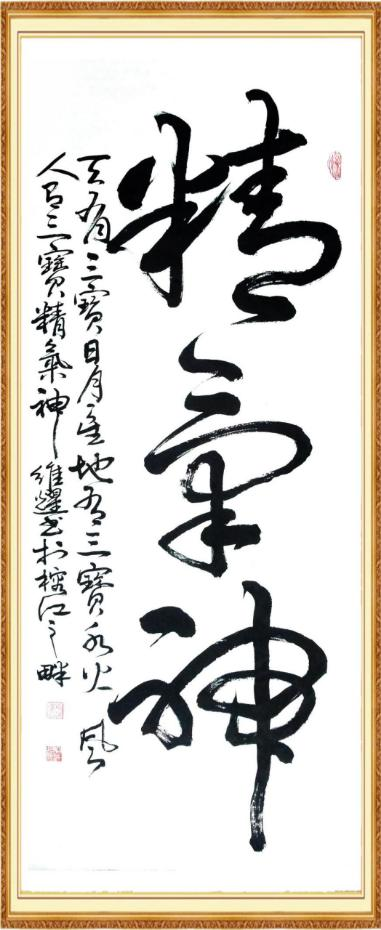 精氣神
天有三寶日月星地有三寶水火風
人有三寶精氣神維耀书於榕江之畔